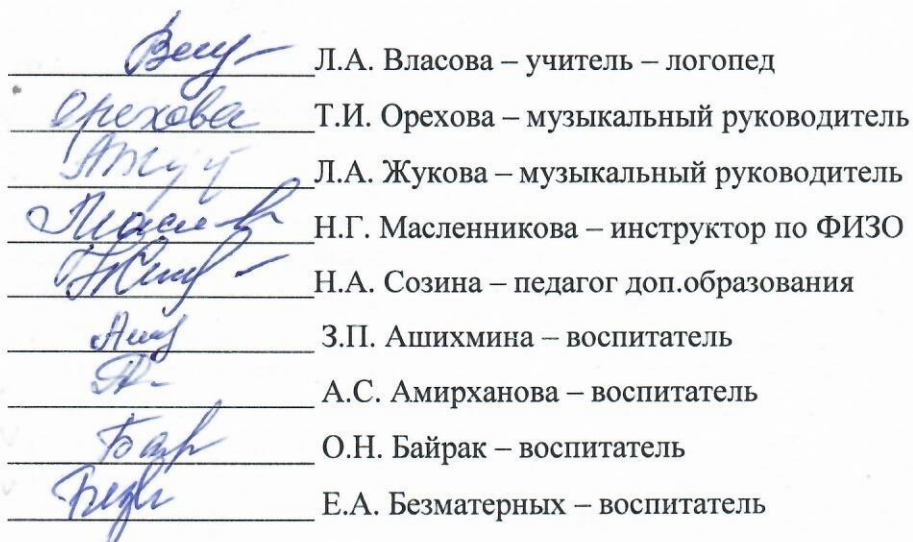 Л.А. Власова – учитель – логопед
Орехова Т.И. Орехова – музыкальный руководитель
Л.А. Жукова – музыкальный руководитель
Н.Г. Масленникова – инструктор по ФИЗО
Н.А. Созина – педагог доп.образования
З.П. Ашихмина – воспитатель
А.С. Амирханова – воспитатель
О.Н. Байрак – воспитатель
Е.А. Безматерных – воспитатель